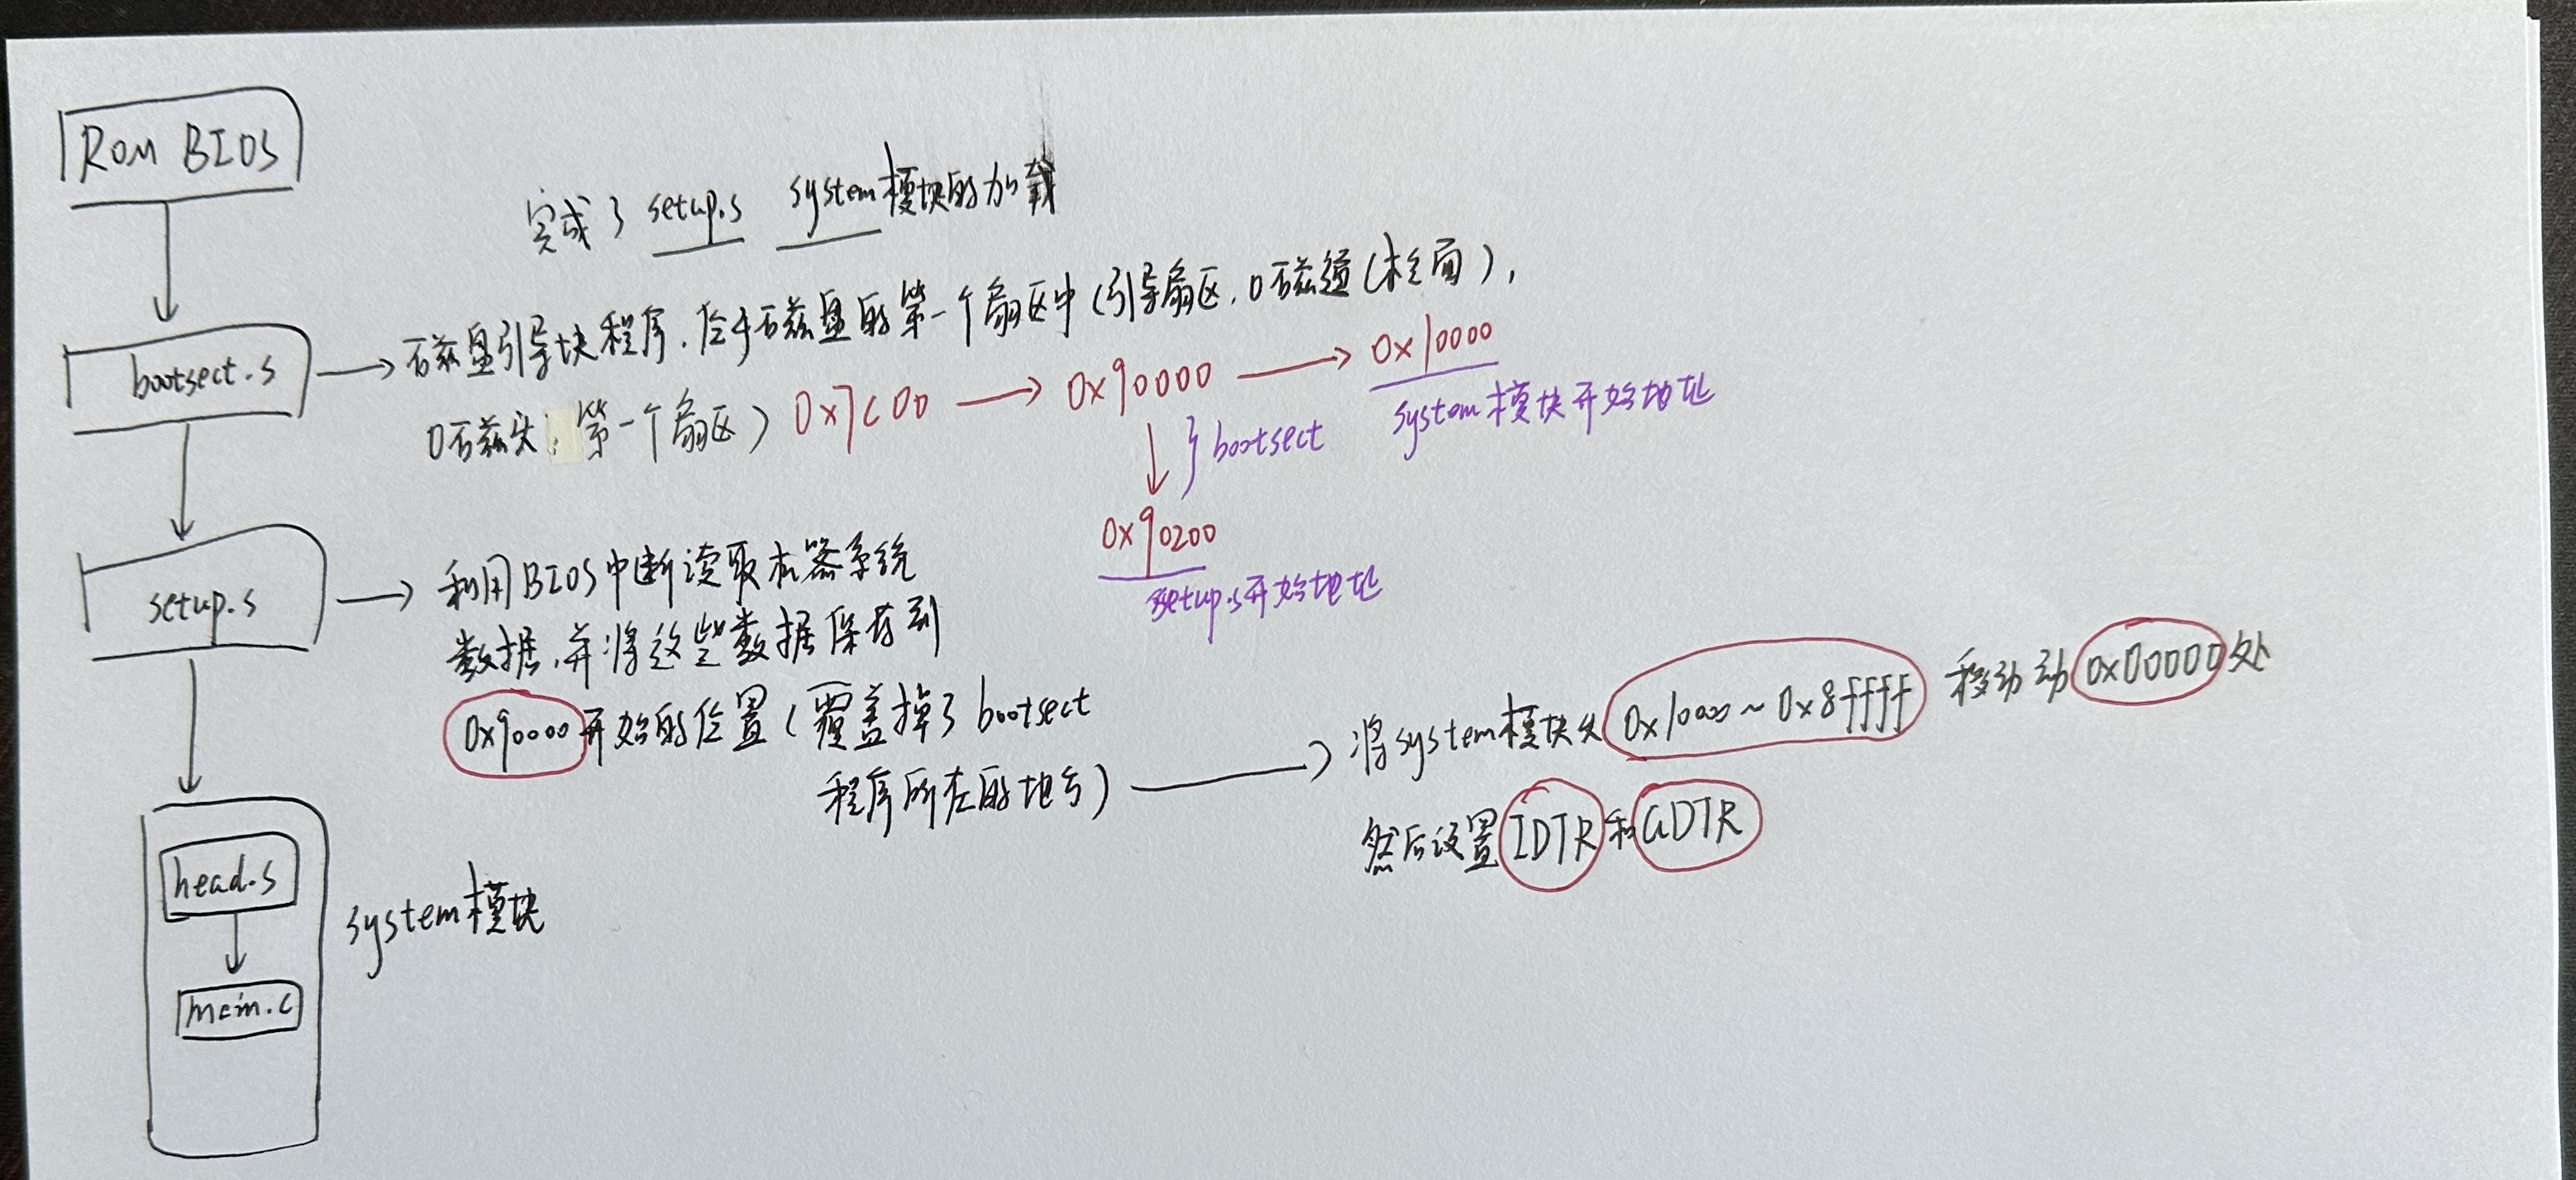 ROM BIOS
完成了 setup.s system模块的加载
bootsect.s
磁盘引导块程序,位于磁盘的第一个扇区中(引导扇区,0磁道(柱面),
0磁头,第一个扇区) 0x7C00 0x90000 0x10000
system模块开始地址
bootsect
0x90200
setup.s开始地址
setup.s
利用BIOS中断读取机器系统
数据,并将这些数据保存到
0x90000开始的位置(覆盖掉了bootsect
程序所在的地方)
将system模块从0x10000~0x8ffff移动动0x00000处
然后设置IDTR和GDTR
head.s
system模块
main.c